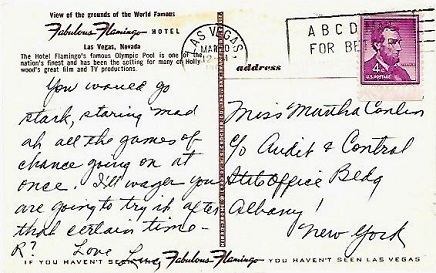 View of the grounds of the World Famous
Fabulous Flamingo HOTEL
Las Vegas, Nevada
The Hotel Flamingo's famous Olympic Pool is one of the
nation's finest and has been the setting for many of Holly
wood's great film and TV productions.
You would go
stark, staring mad
at all the games of
chance going on at
once. I'll wager you
are going to try it after
that certain time-
R? Love
IF YOU HAVEN'T SEEN Fabulous Flamingo YOU HAVEN'T SEEN LAS VEGAS
LAS VEGAS
MAR
A B C D
FOR BE
4¢
U.S. POSTAGE
address
Miss Martha Conlin
c/o Audit & Control
State Office Bldg
Albany!
New York